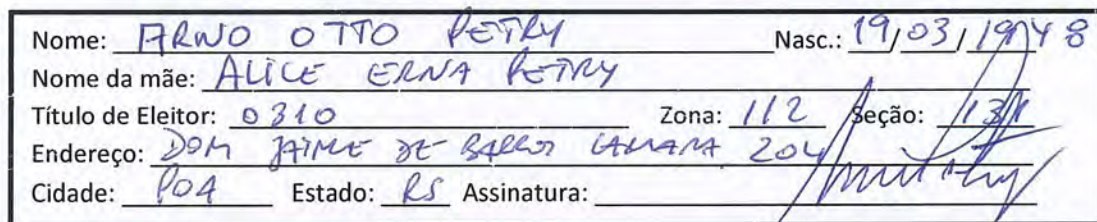 Nome: ARNO OTTO PETRY Nasc.: 19/03/1948
Nome da mãe: ALICE ERNA PETRY
Título de Eleitor: 0310 Zona: 112 Seção: 131
Endereço: DOM JAIME DE BARROS CAMARA 204
Cidade: POA Estado: RS Assinatura: